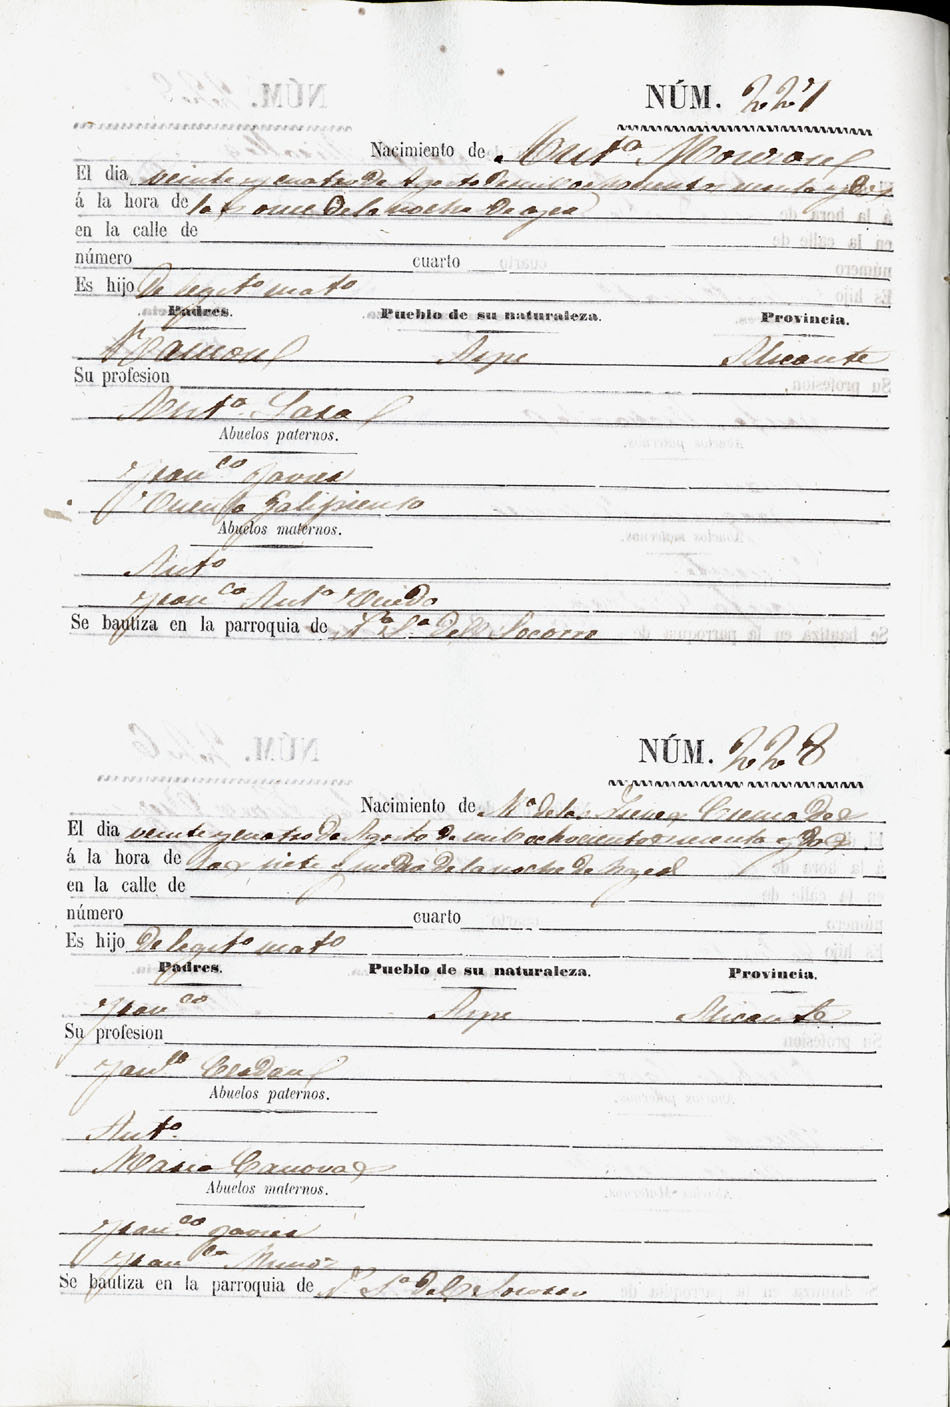 NÚM. 227
Nacimiento de Anta
El dia veinte y cuatro de Agosto de mil ochocientos
á la hora de las once de la noche de ayer
en la calle de
número cuarto
Es hijo de legito mato
Padres. Pueblo de su naturaleza. Provincia.
Ramon Aspe Alicante
Su profesion
Anta
Abuelos paternos.
Franco Javier
Galipienso
Abuelos maternos.
Anto
Franca Anta
Se bautiza en la parroquia de Na Sa del Socorro
NÚM. 228
Nacimiento de Ma de las Cremades
El dia veinte y cuatro de Agosto de mil ochocientos y dos
á la hora de las siete y media de la noche de
en la calle de
número cuarto
Es hijo de legito mato
Padres. Pueblo de su naturaleza. Provincia.
Franco Aspe Alicante
Su profesion
Franca
Abuelos paternos.
Anto
Maria Canovas
Abuelos maternos.
Franco Javier
Franca Muñoz
Se bautiza en la parroquia de Na Sa del Socorro